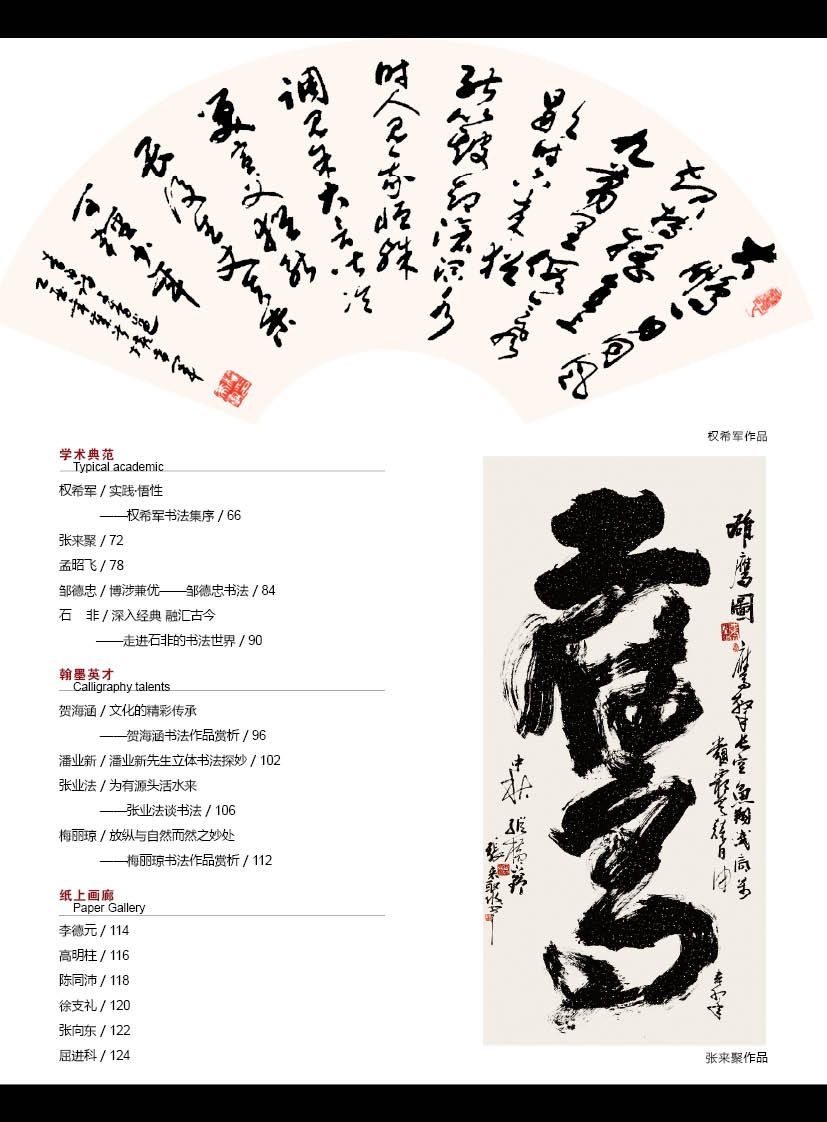 大鹏一日同风
九萬里假令風
歇時下来猶
能簸却滄溟水
时人見我恒殊
調見余大言皆冷
权希军作品
学术典范
Typical academic
权希军 / 实践·悟性
——权希军书法集序 / 66
张来聚 / 72
孟昭飞 / 78
邹德忠 / 博涉兼优——邹德忠书法 / 84
石 非 / 深入经典 融汇古今
——走进石非的书法世界 / 90
翰墨英才
Calligraphy talents
贺海涵 / 文化的精彩传承
——贺海涵书法作品赏析 / 96
潘业新 / 潘业新先生立体书法探妙 / 102
张业法 / 为有源头活水来
——张业法谈书法 / 106
梅丽琼 / 放纵与自然而然之妙处
——梅丽琼书法作品赏析 / 112
纸上画廊
Paper Gallery
李德元 / 114
高明柱 / 116
陈同沛 / 118
徐支礼 / 120
张向东 / 122
屈进科 / 124
雄鷹圖
鷹擊長空魚翔淺底萬
類霜天競自由
张来聚作品